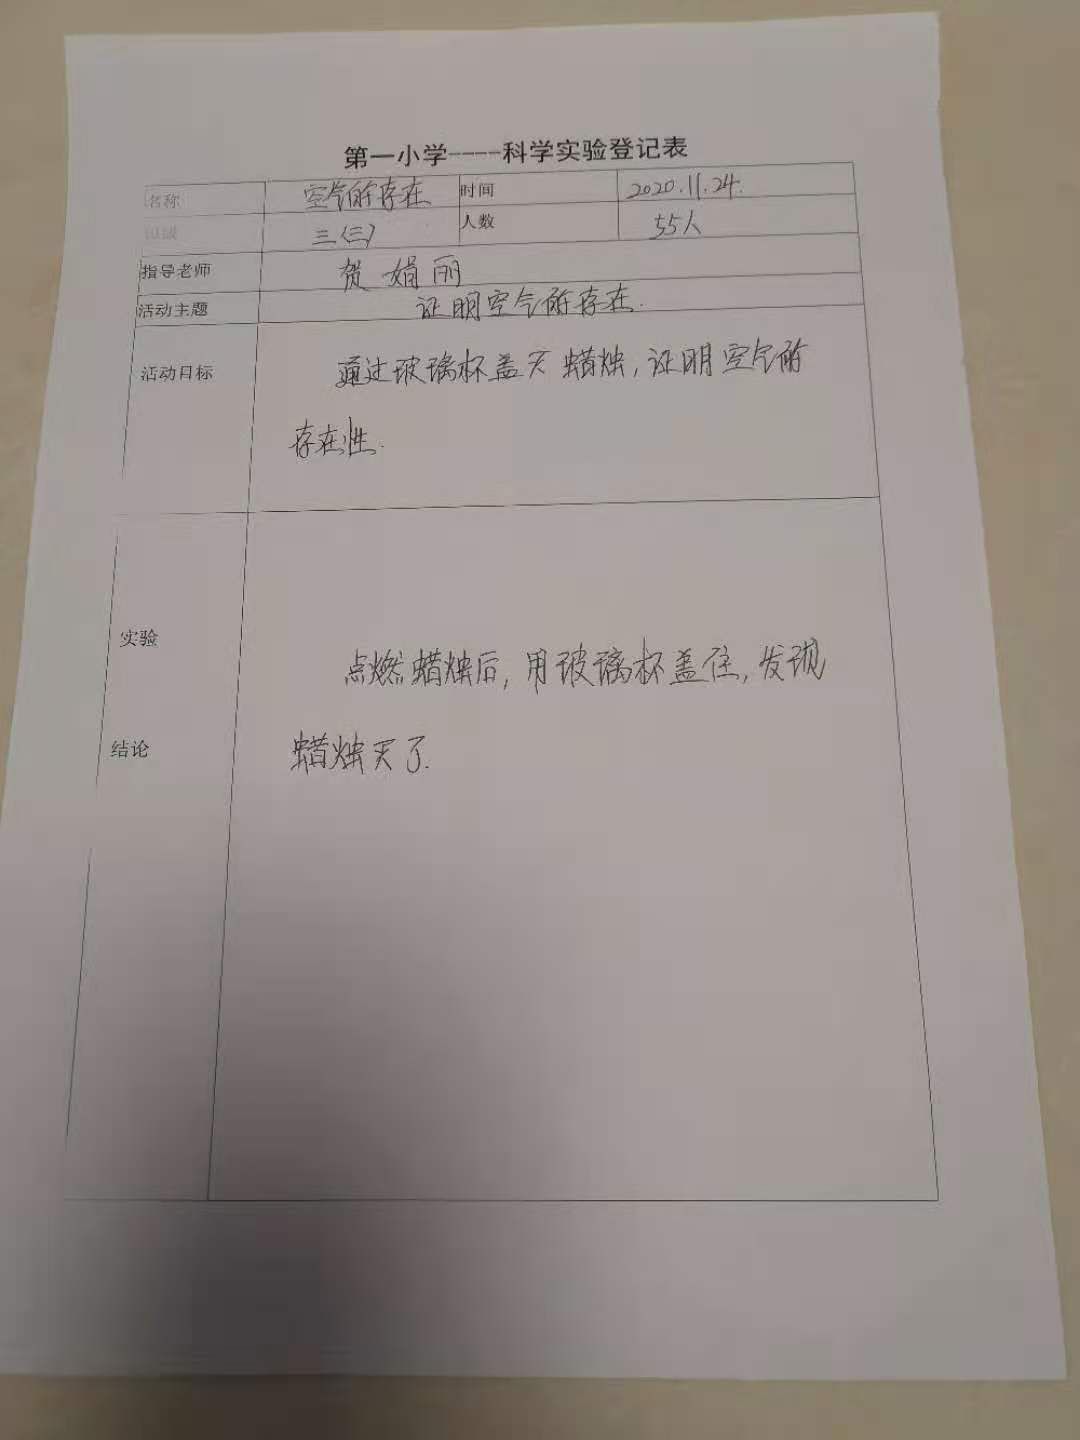 第一小学----科学实验登记表
名称 空气的存在 时间 2020.11.24.
班级 三(三) 人数 55人
指导老师 贺娟丽
活动主题 证明空气的存在.
活动目标 通过玻璃杯盖灭蜡烛,证明空气的
存在性.
实验
点燃蜡烛后,用玻璃杯盖住,发现
结论 蜡烛灭了.